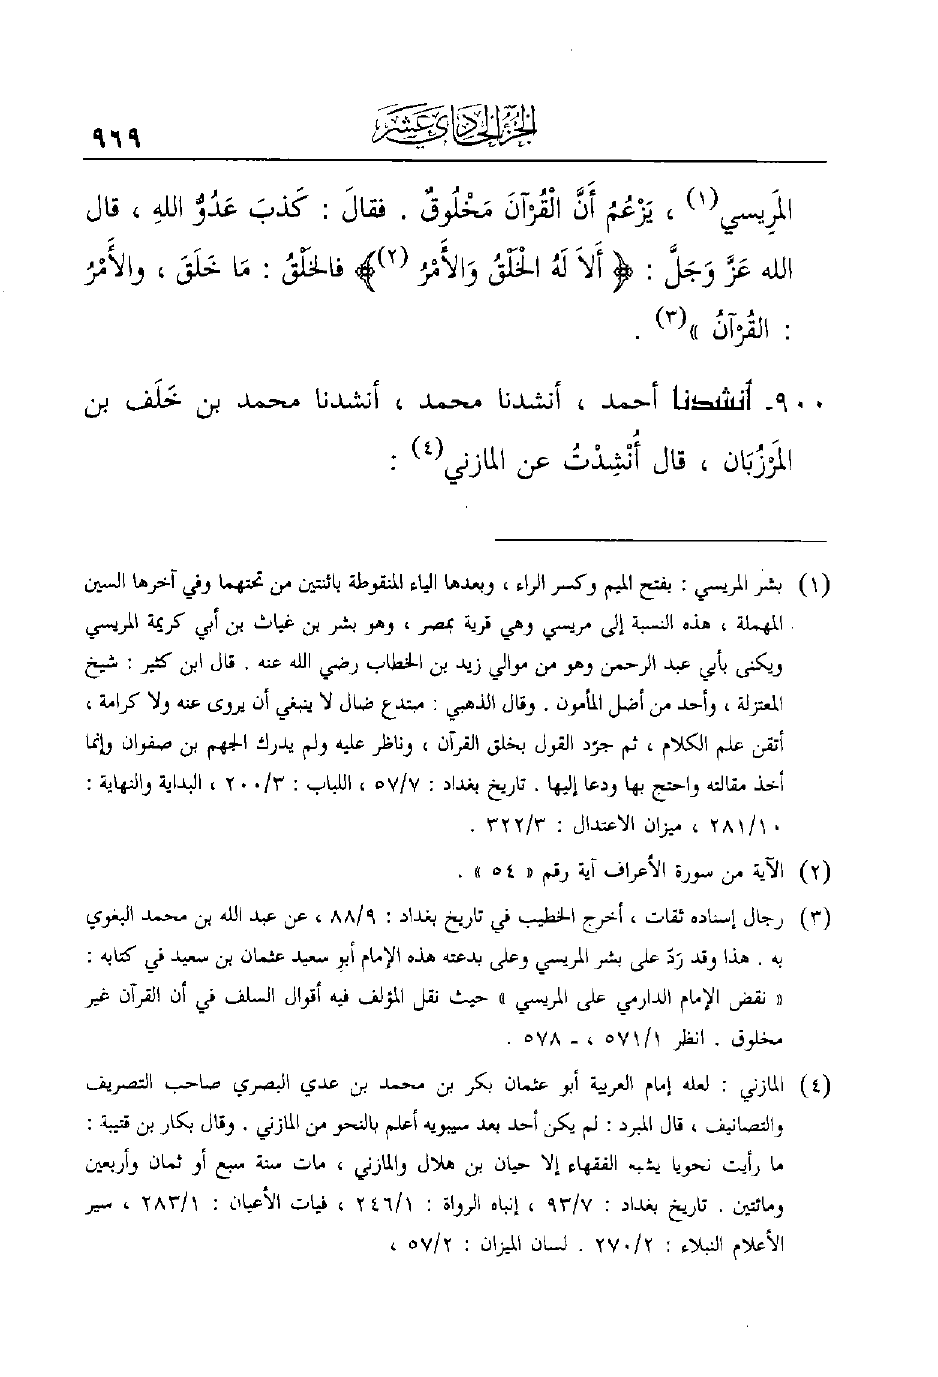 الجزء الحادي عشر
٩٦٩
المَرِيسي(١) ، يَزْعُمُ أَنَّ الْقُرْآنَ مَخْلُوقٌ . فقالَ : كَذبَ عَدُوُّ اللهِ ، قال
الله عَزَّ وَجَلَّ : ﴿ أَلاَ لَهُ الخَلْقُ وَالأَمْرُ (٢)﴾ فالخَلْقُ : مَا خَلَقَ ، والأَمْرُ
: القُرْآنُ »(٣) .
٩٠٠- أنشدنا أحمد ، أنشدنا محمد ، أنشدنا محمد بن خَلَف بن
المَرْزُبَان ، قال أُنْشِدْتُ عن المازني(٤) :
(١) بشر المريسي : بفتح الميم وكسر الراء ، وبعدها الياء المنقوطة باثنتين من تحتهما وفي آخرها السين
المهملة ، هذه النسبة إلى مريسي وهي قرية بمصر ، وهو بشر بن غياث بن أبي كريمة المريسي
ويكنى بأبي عبد الرحمن وهو من موالي زيد بن الخطاب رضي الله عنه . قال ابن كثير : شيخ
المعتزلة ، وأحد من أضل المأمون . وقال الذهبي : مبتدع ضال لا ينبغي أن يروى عنه ولا كرامة ،
أتقن علم الكلام ، ثم جرّد القول بخلق القرآن ، وناظر عليه ولم يدرك الجهم بن صفوان وإنما
أخذ مقالته واحتج بها ودعا إليها . تاريخ بغداد : ٥٧/٧ ، اللباب : ٢٠٠/٣ ، البداية والنهاية :
٢٨١/١٠ ، ميزان الاعتدال : ٣٢٢/٣ .
(٢) الآية من سورة الأعراف آية رقم « ٥٤ » .
(٣) رجال إسناده ثقات ، أخرج الخطيب في تاريخ بغداد : ٨٨/٩ ، عن عبد الله بن محمد البغوي
به . هذا وقد رَدّ على بشر المريسي وعلى بدعته هذه الإمام أبو سعيد عثمان بن سعيد في كتابه :
« نقض الإمام الدارمي على المريسي » حيث نقل المؤلف فيه أقوال السلف في أن القرآن غير
مخلوق . انظر ٥٧١/١ ، - ٥٧٨ .
(٤) المازني : لعله إمام العربية أبو عثمان بكر بن محمد بن عدي البصري صاحب التصريف
والتصانيف ، قال المبرد : لم يكن أحد بعد سيبويه أعلم بالنحو من المازني . وقال بكار بن قتيبة :
ما رأيت نحويا يشبه الفقهاء إلا حيان بن هلال والمازني ، مات سنة سبع أو ثمان وأربعين
ومائتين . تاريخ بغداد : ٩٣/٧ ، إنباه الرواة : ٢٤٦/١ ، فيات الأعيان : ٢٨٣/١ ، سير
الأعلام النبلاء : ٢٧٠/٢ . لسان الميزان : ٥٧/٢ ،